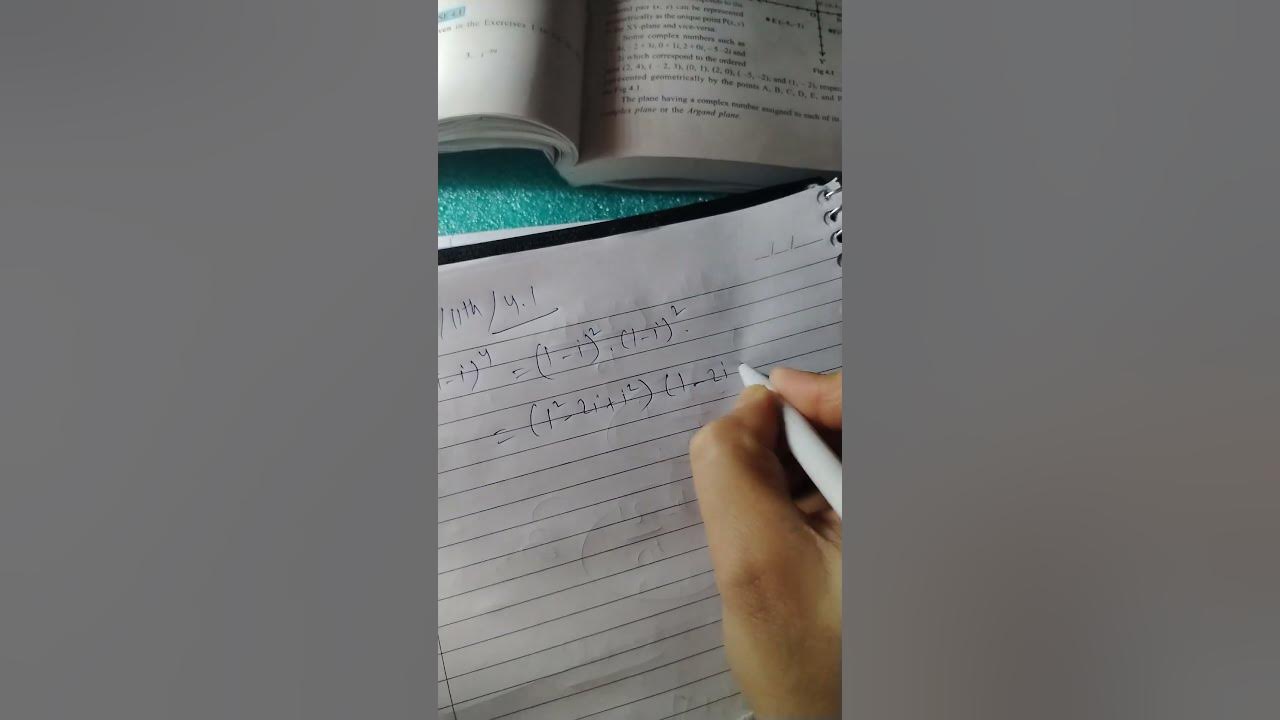 SE 4.1
ven in the Exercises 1 to
3. i⁻³⁹
pair (x, y) can be represented
metrically as the unique point P(x, y)
XY-plane and vice-versa.
Some complex numbers such as
4i, – 2 + 3i, 0 + 1i, 2 + 0i, – 5 –2i and
2i which correspond to the ordered
(2, 4), (– 2, 3), (0, 1), (2, 0), (–5, –2), and (1, – 2), respec
resented geometrically by the points A, B, C, D, E, and F
Fig 4.1.
The plane having a complex number assigned to each of its
complex plane or the Argand plane.
E (–5, –2)
Y
Fig 4.1
/11th/4.1
–i)⁴ = (1–i)². (1–i)².
= (1²–2i+i²) (1–2i